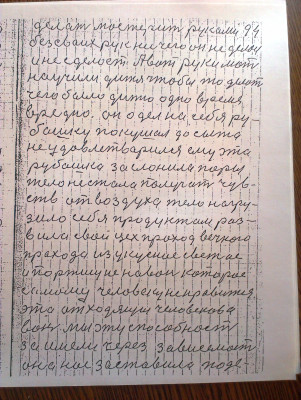 делам мостечит руками 94
без своих рук ничего он не делал
и не сделает А вот руки мат
научили дитя чтобы то делат
чего было дито одно время
вредно. он одел на себя ру-
башку покушал до сыта
неудовлетварился ему эта
рубашка заслонила поры,
тело не стала получат чув-
ств от воздуха тело нагру-
зило себя продуктам раз-
вила свой цех проход вечного
прахода из вкусное светое
а поржи уже навон которое
самому человеку ненравится
это отходящи человекова
вон мы эту способност
за имели через зависемост
она нас заставила подв-